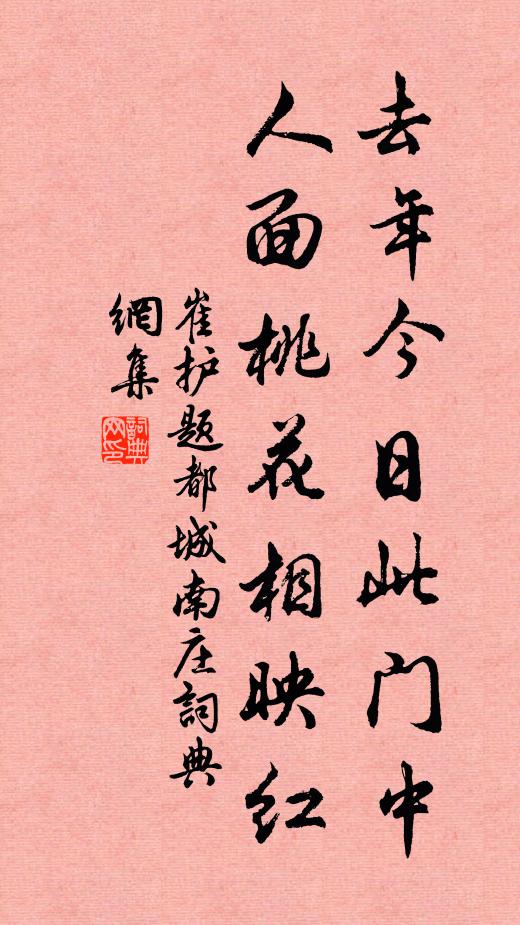 去年今日此门中
人面桃花相映红
崔护题都城南庄詞典
網集
詞典网印